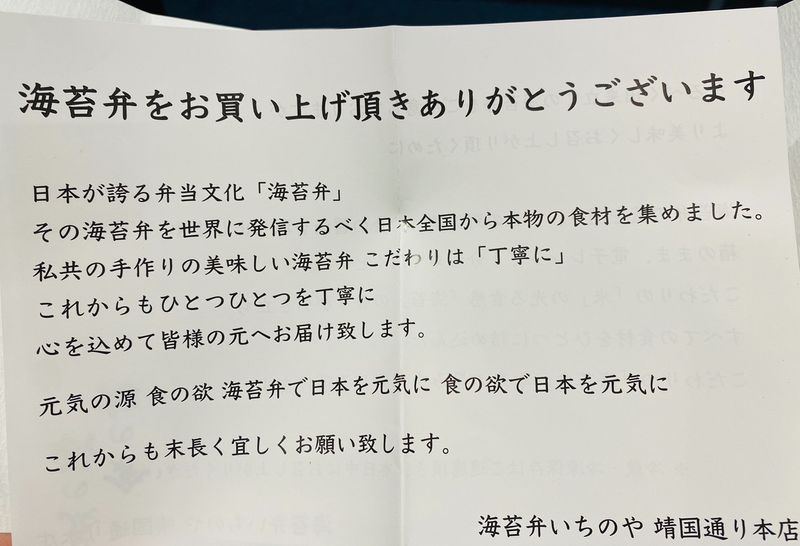 海苔弁をお買い上げ頂きありがとうございます
日本が誇る弁当文化「海苔弁」
その海苔弁を世界に発信するべく日本全国から本物の食材を集めました。
私共の手作りの美味しい海苔弁 こだわりは「丁寧に」
これからもひとつひとつを丁寧に
心を込めて皆様の元へお届け致します。
元気の源 食の欲 海苔弁で日本を元気に 食の欲で日本を元気に
これからも末長く宜しくお願い致します。
海苔弁いちのや 靖国通り本店